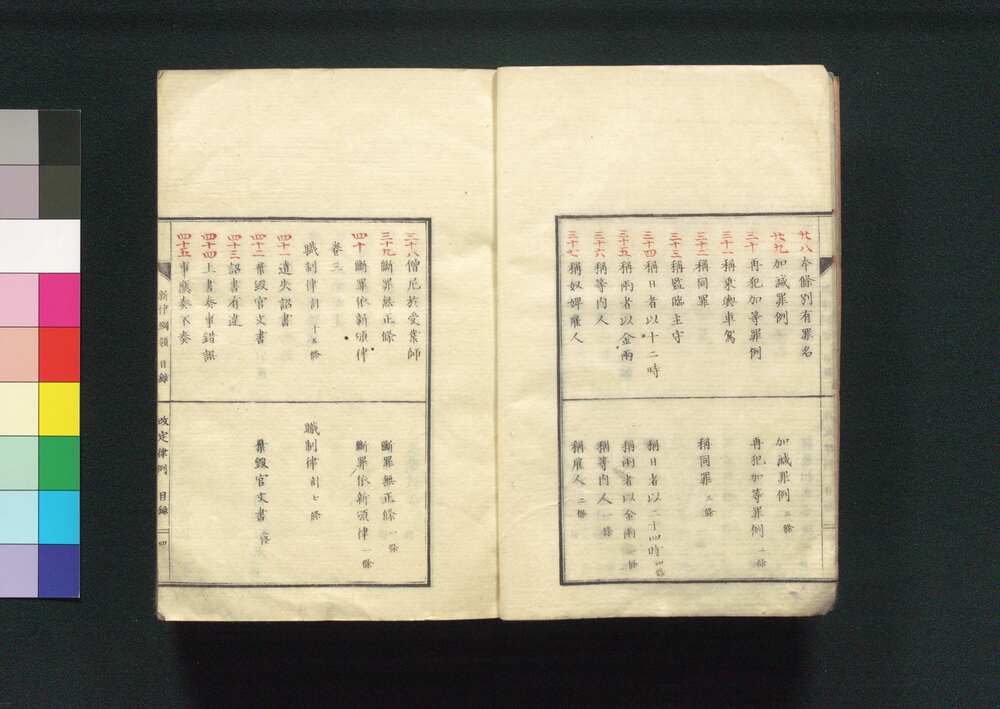 廿八 本條別有罪名
廿九 加減罪例
三十 再犯加等罪例
三十一 稱乘輿車駕
三十二 稱同罪
三十三 稱監臨主守
三十四 稱日者以十二時
三十五 稱兩者以金兩
三十六 稱等內人
三十七 稱奴婢雇人
加減罪例 二條
再犯加等罪例 一條
稱同罪 二條
稱日者以二十四時 四條
稱兩者以金兩 一條
稱等內人 一條
稱雇人 二條
三十八 僧尼於受業師
三十九 斷罪無正條
四十 斷罪依新頒律
卷三
職制律 計十五條
四十一 遺失詔書
四十二 棄毀官文書
四十三 詔書有違
四十四 上書奏事錯誤
四十五 事應奏不奏
斷罪無正條 一條
斷罪依新頒律 一條
職制律 計七條
棄毀官文書 二條
新律綱領 目錄
改定律例 目錄 四